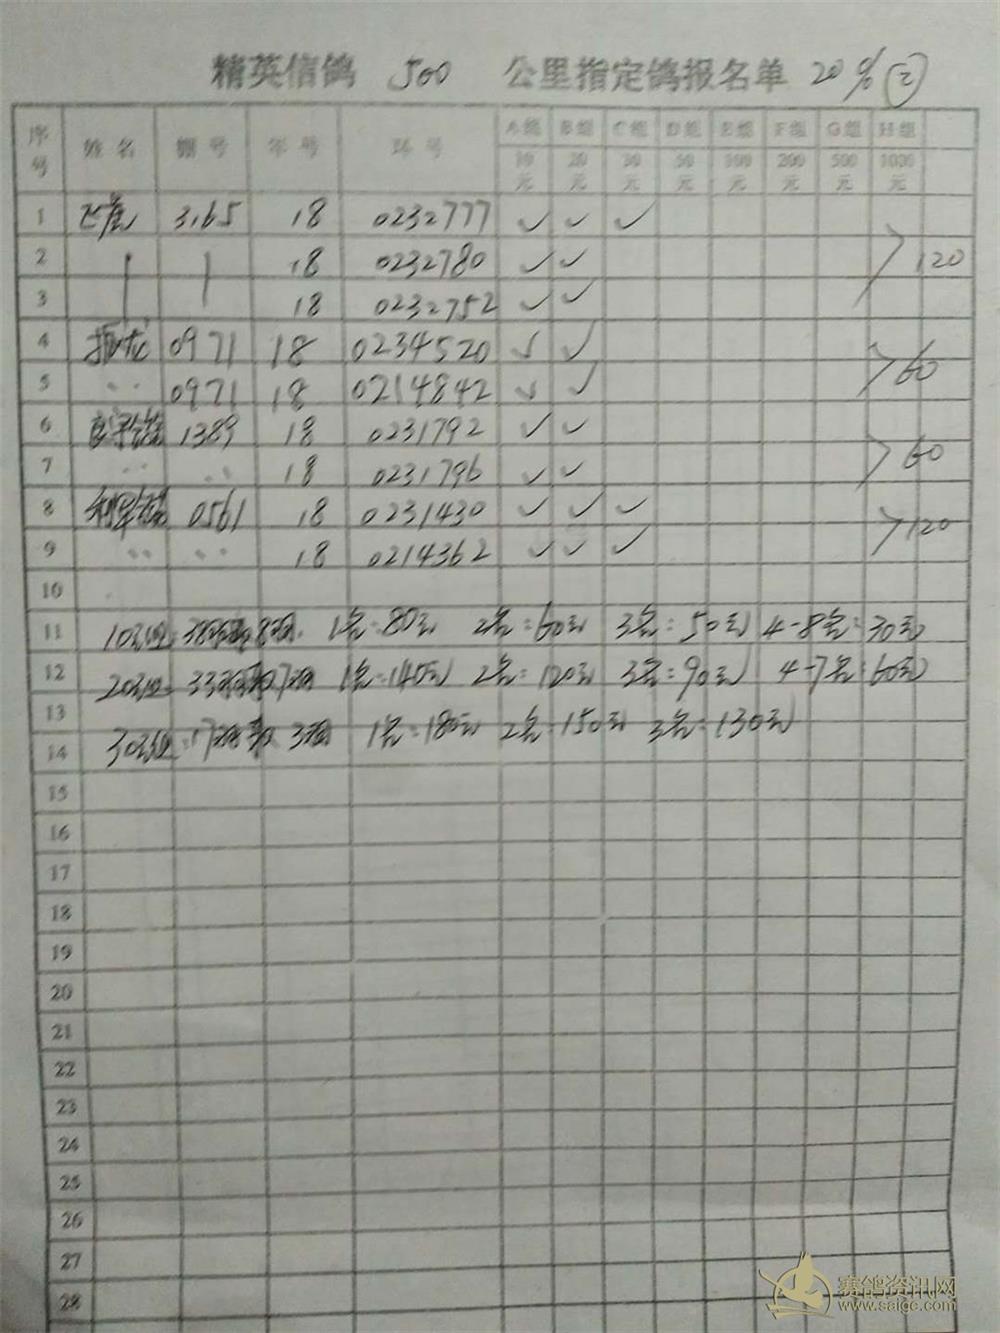 精英信鸽 500 公里指定鸽报名单 20% ②
序号 姓名 棚号 年号 环号 A组 B组 C组 D组 E组 F组 G组 H组
10元 20元 30元 50元 100元 200元 500元 1000元
1 3165 18 0232777 ✓ ✓ ✓
2 18 0232780 ✓ ✓ 120
3 18 0232752 ✓ ✓
4 0971 18 0234520 ✓ ✓
5 〃 0971 18 0214842 ✓ ✓ 60
6 1389 18 0231792 ✓ ✓
7 〃 〃 18 0231796 ✓ ✓ 60
8 0561 18 0231430 ✓ ✓ ✓
9 〃 〃 18 0214362 ✓ ✓ ✓ 120
10
11 10元组: 38 8 1名:80元 2名:60元 3名:50元 4-8名:30元
12 20元组: 33 7 1名:140元 2名:120元 3名:90元 4-7名:60元
13
14 30元组: 17 3 1名:180元 2名:150元 3名:130元
15
16
17
18
19
20
21
22
23
24
25
26
27
28
赛鸽资讯网
www.saigc.com